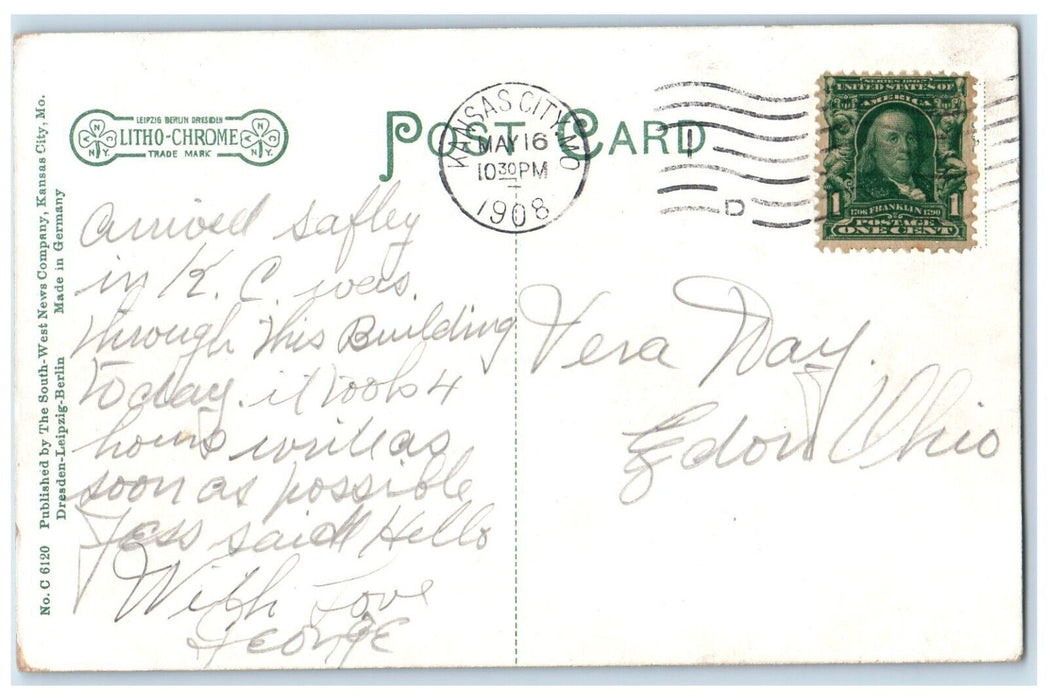 LEIPZIG BERLIN DRESDEN
LITHO-CHROME
TRADE MARK
N
N.Y.
N
N.Y.
POST CARD
KANSAS CITY, MO
MAY 16
10 30 PM
1908
1
D
SERIES 1902
UNITED STATES OF
AMERICA
1 1
1706 FRANKLIN 1790
POSTAGE
ONE CENT
Arrived safley
in K. C. was
through this Building
today. it took 4
hours write as
soon as possible
Jess said Hello
With Love
George
Vera Day.
Edon Ohio
No. C 6120 Published by The South-West News Company, Kansas City, Mo.
Dresden-Leipzig-Berlin Made in Germany